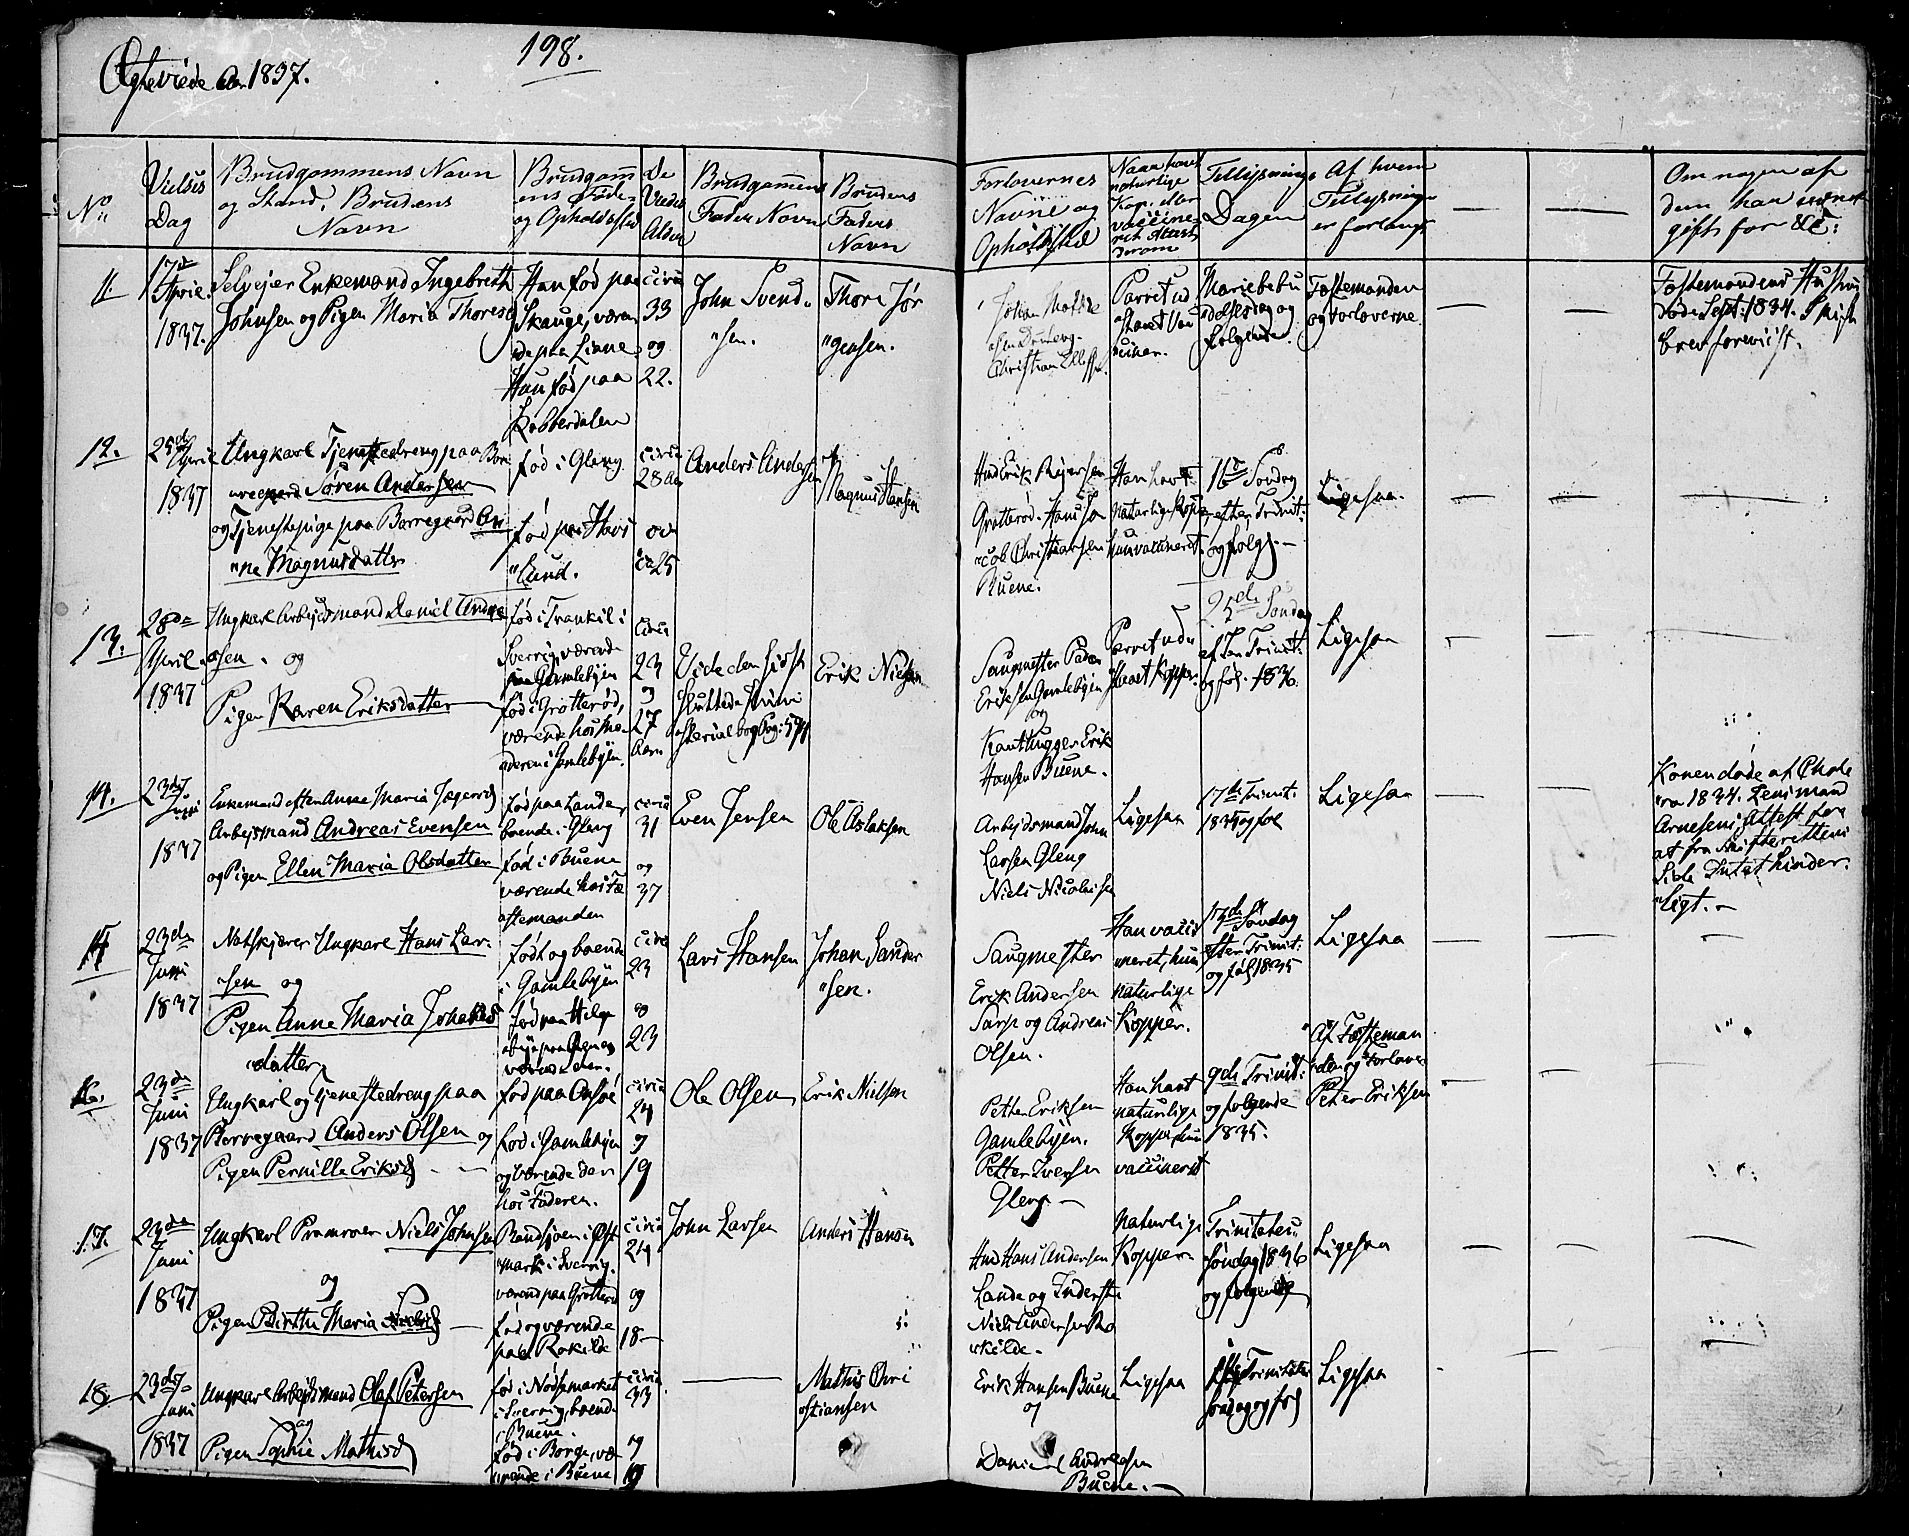 198.
Ægteviede Ao 1837.
No
Vielses Dag
Brudgommens Navn
og Stand, Brudens
Navn
Brudgomm
ens Føde-
og Opholdsted
De
Viedes
Alder
Brudgommens
Fader Navn
Brudens
Faders
Navn
Forlovernes
Navne og
Opholdsted
Naar havt
naturlige
Kop. eller
vaccine-
ret Attest
derom
Tillysnings
Dagen
Af hvem
Tillysning
er forlangt
Om nogen af
dem har været
gift før &c:
11.
17de
April
1837.
Selvejer Enkemand Ingebreth
Johnsen og Pigen Maria Thoresd
Han fød paa
Skauge, væren
de paa Liane
Hun fød paa
Kobberdalen
circa
33
og
22.
John Svend
"sen.
Thore Jør
"gensen.
Christian
Parret ud
staaet Vac
Mariebebu
delsesdag og
følgende.
Fæstemanden
og Forloverne
Fæstemandens Hustru
døde Sept: 1834. Skift
brev foreviist.
12.
25de
April
1837
Ungkarl Tjenestedreng paa Bor
regaard Søren Andersen
og Tjenestepige paa Borregaard An
"ne Magnusdatter
fød i Gleng
fød paa Havs
"lund.
circa
28
ca 25
Anders Andersen
Magnus Hansen
Hns Erik Rejersen
Grotterød. Hans Ja
"cob Christiansen
Buene.
Han havt
naturlige Kopp
hun vaccineret.
16de Søndag
efter Trinit:
og følg. —
Ligesaa.
13.
28de
April
1837
Ungkarl Arbejdsmand Daniel Andre
asen. og
Pigen Karen Eriksdatter
fød i Trankil i
Sverrig, værende
paa Gamlebyen
fød i Grotterød,
værende hos Mo
deren i Gamlebyen.
circa
23
og
27
Aarn
Vide den sidst
sluttede Mini
sterialbog Pag: 591
Erik Nielsen
Saugmester Peder
Eriksen Gamlebyen
og
Kanthugger Erik
Hansen Buene.
Parret ud
staaet Kopper.
25de Søndag
og føl. 1836.
Ligesaa
14.
23de
Juni
1837
Enkemand efter Anne Maria Jægersd
Arbejdsmand Andreas Evensen
og Pigen Ellen Maria Olsdatter
fød paa Lande,
boende i Gleng
fød i Buene
værende hos Fæ
stemanden
circa
31
og
37
Even Jensen
Ole Aslaksen
Arbejdsmand John
Larsen Gleng
Niels Nicolaisen
Ligesaa
17de Trinit.
1835 og føl
Ligesaa
Konen døde af Chole
ra 1834. Lensmand
Arnesens Attest for
at fra Skifterettens
Side Intet hinder
"ligt. —
15
23de
Juni
1837
Natskjærer Ungkarl Hans Lar
"sen og
Pigen Anne Maria Johansd
datter
født og boende
i Gamlebyen
fød paa Helge
byen paa
værende der.
circa
23
og
23
Lars Hansen
Johan Sander
"sen.
Saugmester
Erik Andersen
Sarp og Andreas
Olsen.
Han vacci
"neret, hun
naturlige
Kopper.
17de Søndag
efter Trinit:
og føl 1835
Ligesaa
16.
23de
Juni
1837
Ungkarl og Tjenestedreng paa
Borregaard Anders Olsen og
Pigen Pernille Eriksd
fød paa
fød i Gamlebyen
og værende der
hos Faderen.
circa
24
og
19
Ole Olsen
Erik Nielsen
Petter Eriksen
Gamlebyen.
Petter Iversen
Gleng —
Han havt
naturlige
Kopper, hun
vaccineret
9de Trinit:
og følgende
1835.
Af Fæsteman
den og Forlover
Peter Eriksen
17.
23de
Juni
1837
Ungkarl Pramroer Niels Johnsen
og
Pigen Birthe Maria
mark i Sverrig.
værend paa Grotterød
fød og værende
paa Rokilde
circa
24
og
18 —
John Larsen
Anders Hansen
Hns Hans Andersen
Lande og Inderste
Niels Andersen Ro
kilde. —
Naturlige
Kopper.
Trinitatis
Søndag 1836
og følgende
Ligesaa
18
23de
Juni
1837
Ungkarl Arbejdsmand Olaf Petersen
og
Pigen Sophie Mathisd
fød i Nordsmarket
i Sverrig, boend
i Buene
fød i Borge, væ
rende i Buene
circa
33
og
Mathis Chri
stiansen
Erik Hansen Buene
og
Daniel Andresen
Buene. —
Ligesaa
Trinitatis
Søndag og føl
Ligesaa